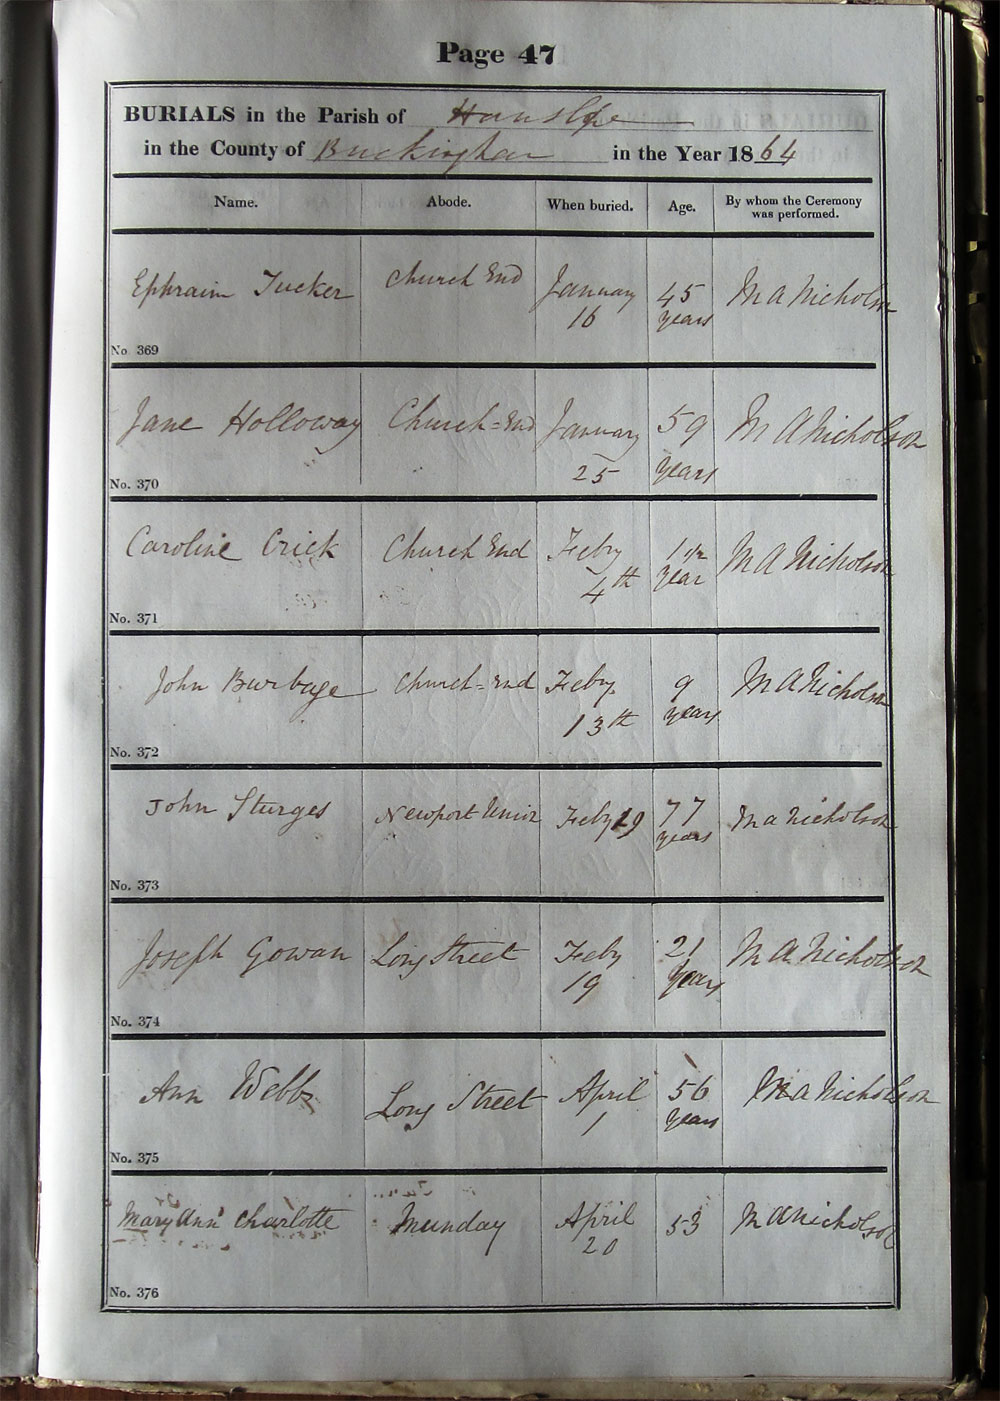 Page 47
BURIALS in the Parish of Hanslope
in the County of Buckingham in the Year 1864
Name. Abode. When buried. Age. By whom the Ceremony was performed.
Ephraim Tucker Church End January 16 45 years M A Nicholson
No. 369
Jane Holloway Church=End January 25 59 years M A Nicholson
No. 370
Caroline Crick Church End Feby 4th 1 1/2 year M A Nicholson
No. 371
John Burbage Church=End Feby 13th 9 years M A Nicholson
No. 372
John Sturges Newport Union Feby 19 77 years M A Nicholson
No. 373
Joseph Gowan Long Street Feby 19 21 years M A Nicholson
No. 374
Ann Webb Long Street April 1 56 years M A Nicholson
No. 375
Mary Ann Charlotte Munday April 20 53 M A Nicholson
No. 376